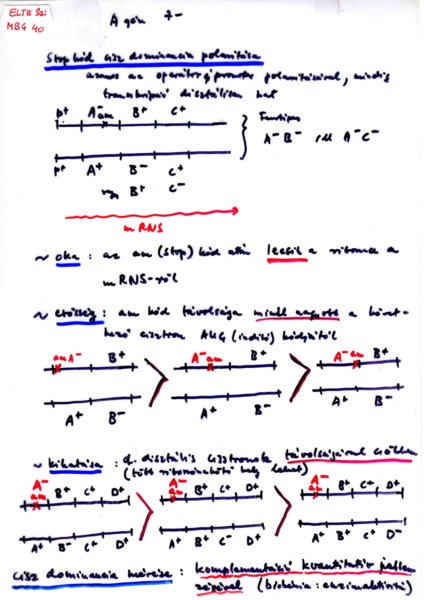 ELTE Szi
MBG 40
A gén 7-
Stop kód cisz dominancia polaritása
azonos az operátor, promoter polaritásával, mindig
transzkripció disztálisan hat
p+ A- am B+ C+
Funkciós
A- B- ill A- C-
p+ A+ B- C+
vagy B+ C-
mRNS
~ oka : az am (stop) kód után leesik a riboszóma a
mRNS-ről
~ erősség : am kód távolsága minél nagyobb a követ-
kező cisztron AUG (indító) kódjától
am A- B+ > A- am B+ > A- am B+
A+ B- A+ B- A+ B-
~ kihatása : a disztális cisztronok távolságával csökken
(több riboszómakötő hely lehet)
A- am B+ C+ D+ > A- am B+ C+ D+ > A- am B+ C+ D+
A+ B- C+ D+ A+ B+ C- D+ A+ B+ C+ D-
cisz dominancia mérése : komplementáció kvantitatív jellem-
zésével (biokémia : enzimaktivitás)